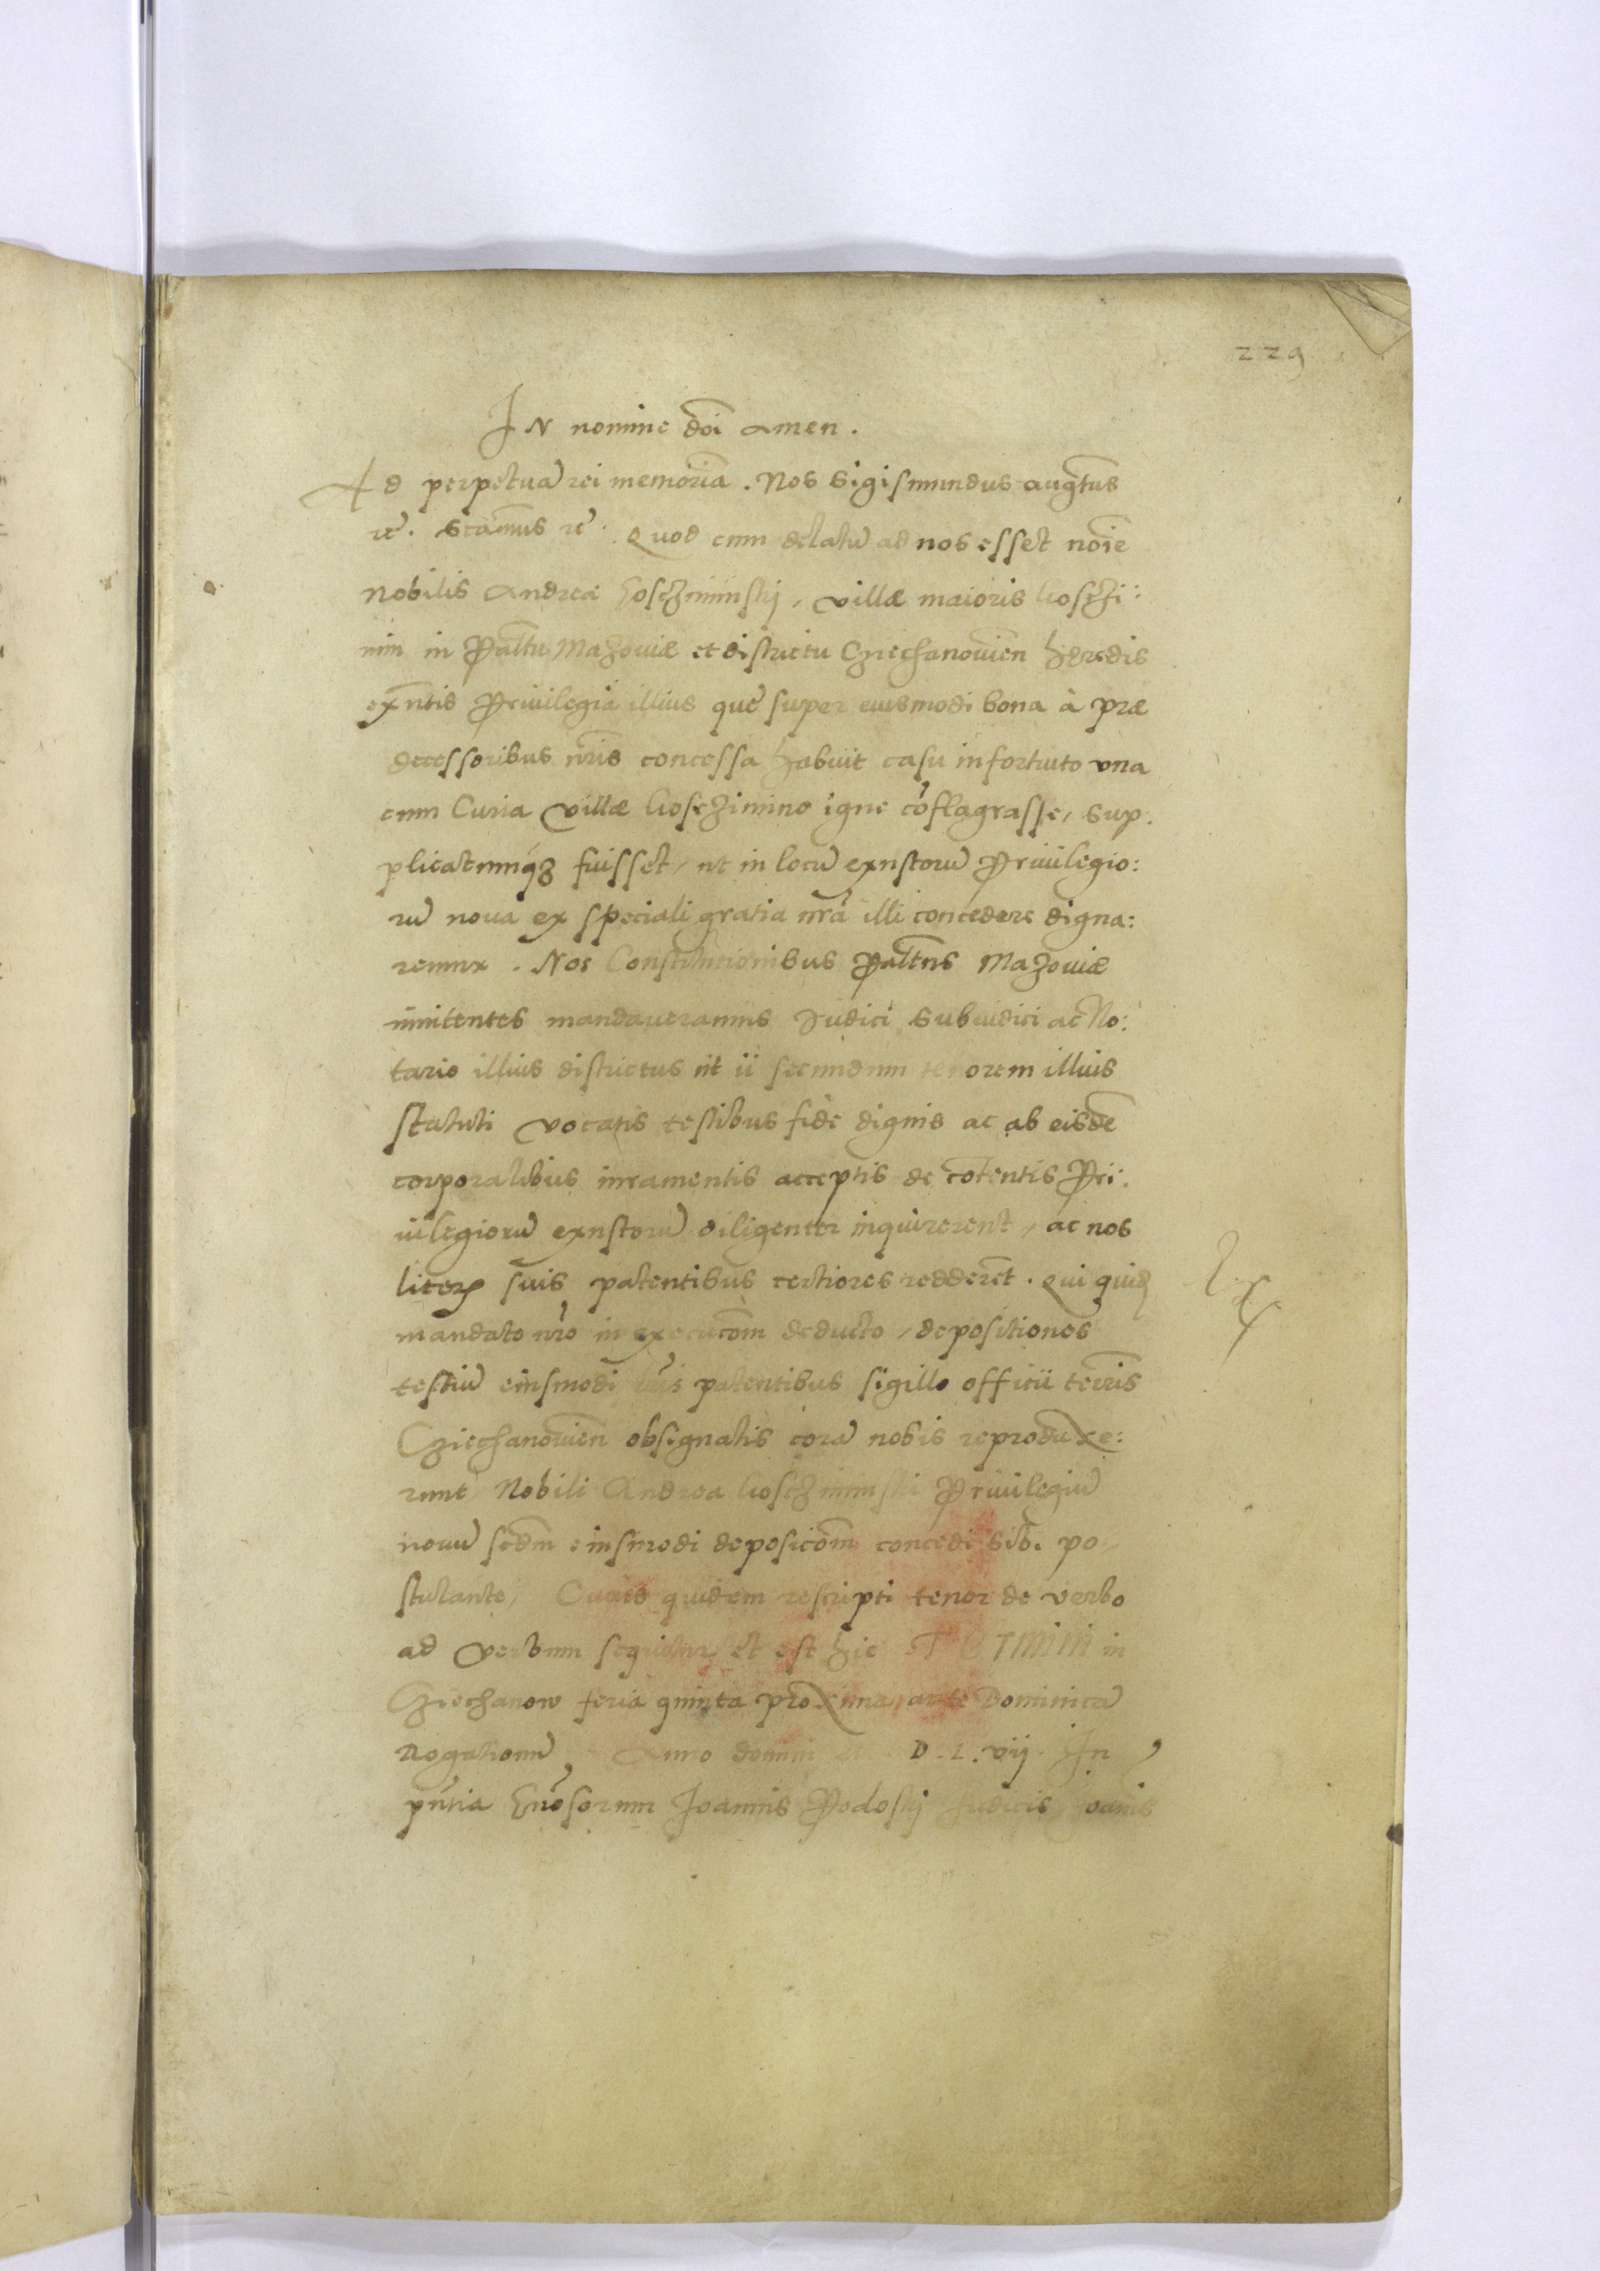 229
IN nomine doi amen.
Ad perpetuā rei memoriā. Nos Sigismundus augtus
rē. Significamus
nobilis Andreæ villæ maioris
in Palttu Mazouiæ et districtu Cziechanowien heredis
exntis Priuilegia illius que super eiusmodi bona à præ
decessoribus nris concessa habuit casu infortuito vna
cum Curia villæ igne cōflagrasse, sup:
plicatumq3 fuisset, ut in locū exustorū Priuilegio:
rū noua ex speciali gratia nrā illi concedere digna:
remur. Nos Constitutionibus Palttus Mazouiæ
innitentes mandaueramus Judici Subiudici ac No:
tario illius districtus ut ii secundum tenorem illius
statuti vocatis testibus fide dignis ac ab eisdē
corporalibus iuramentis acceptis de cōtentis Pri:
uilegiorū exustorū diligenter inquirerent, ac nos
suis patentibus certiores redderēt. Qui quidē
mandato nro in executōm deducto, depositiones
testiū eiusmodi lris patentibus sigillo officii terris
Cziechanowien obsignatis corā nobis reproduxe:
runt Nobili Andrea Priuilegiū
nouū scdm eiusmodi depositōm concedi sibi po
stulante, Cuius quidem rescripti tenor de verbo
ad verbum sequitur et est hic in
Cziechanow feria quinta proxima ante Dominicā
Rogationū Anno domini D. L. vij. In
pntia Gnosorum Joannis Podoskj Judicis Joanis